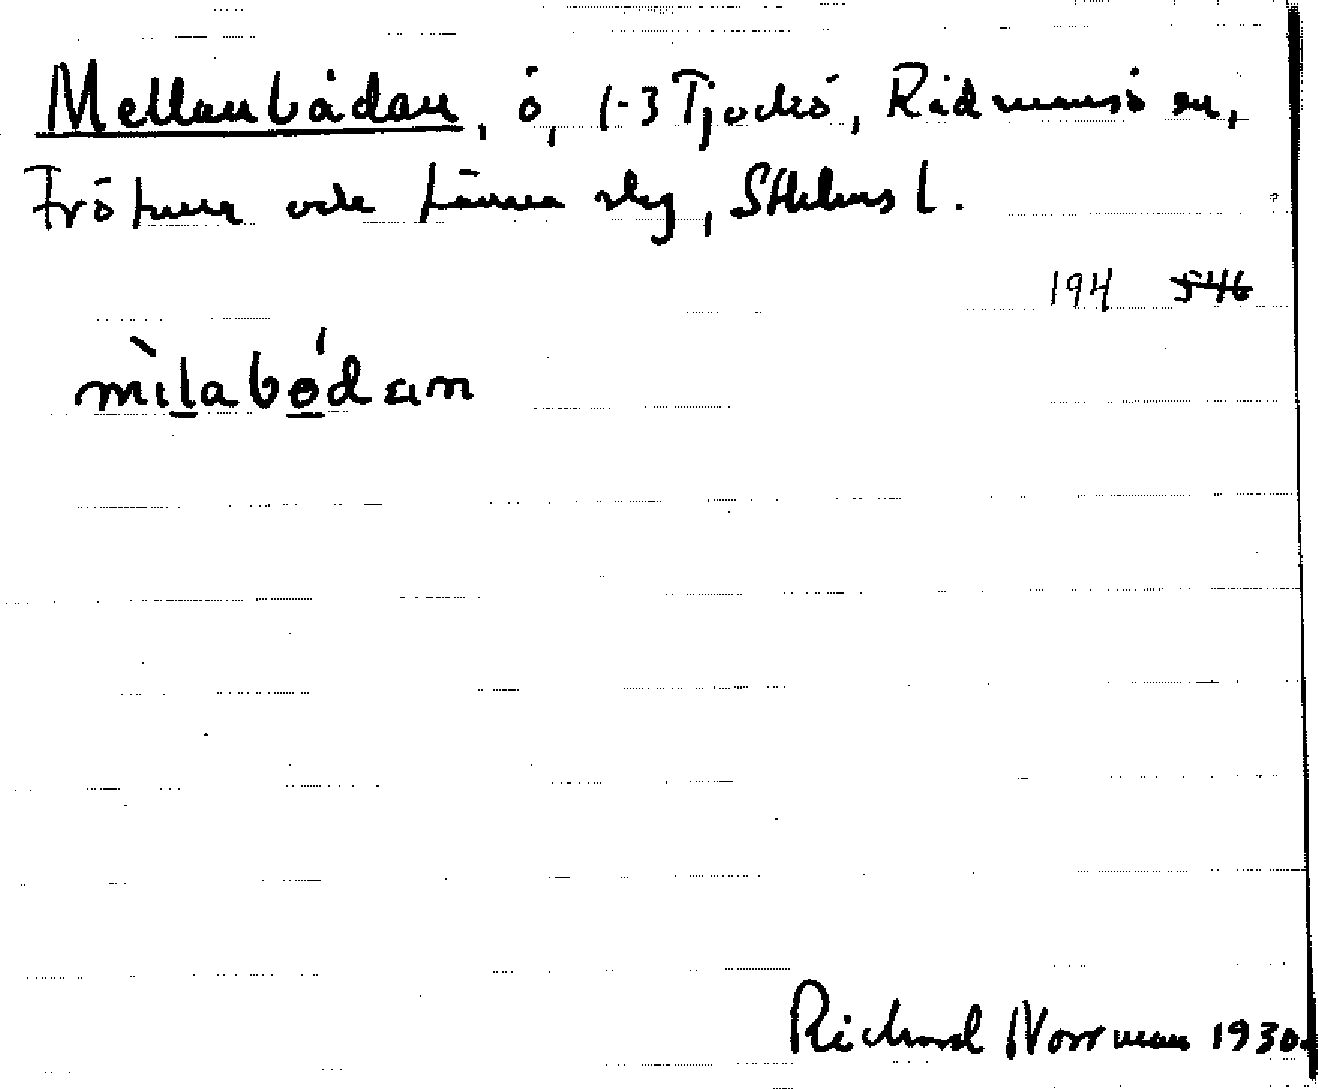 Mellanbådan, ö, 1-3 Tjockö, Rådmansö sn,
Frötuna och Länna skg, Sthlms l.
194 546
mìlabǿdan
Richard Norrman 1930.